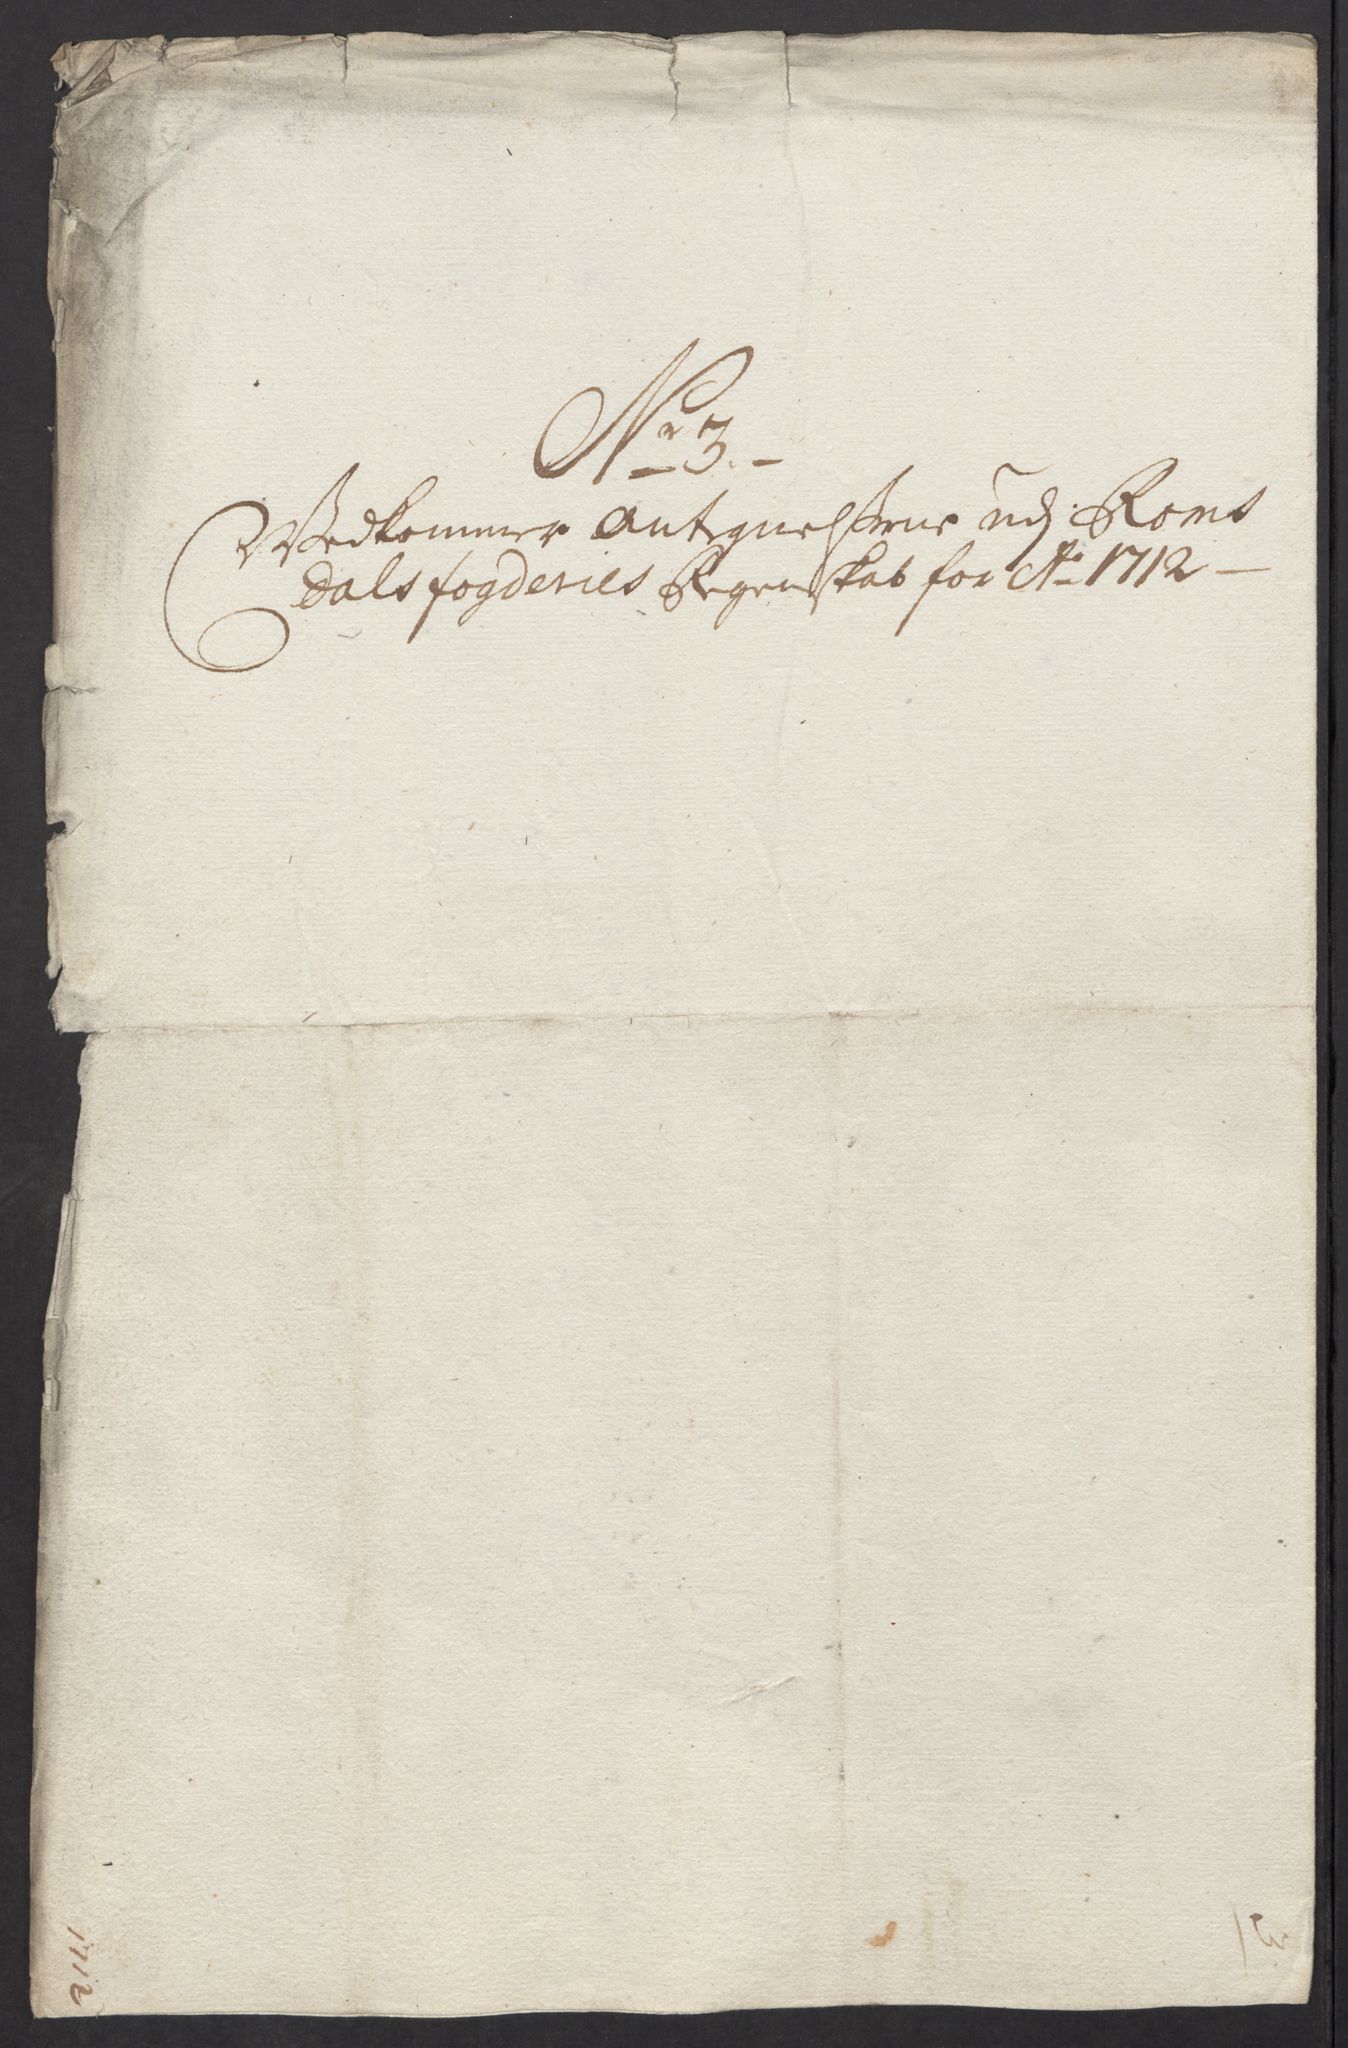 Nr 3.
Vedkommer Antegnelserne udj Roms
dals fogderies Regenskab for Ao 1712
1712
3